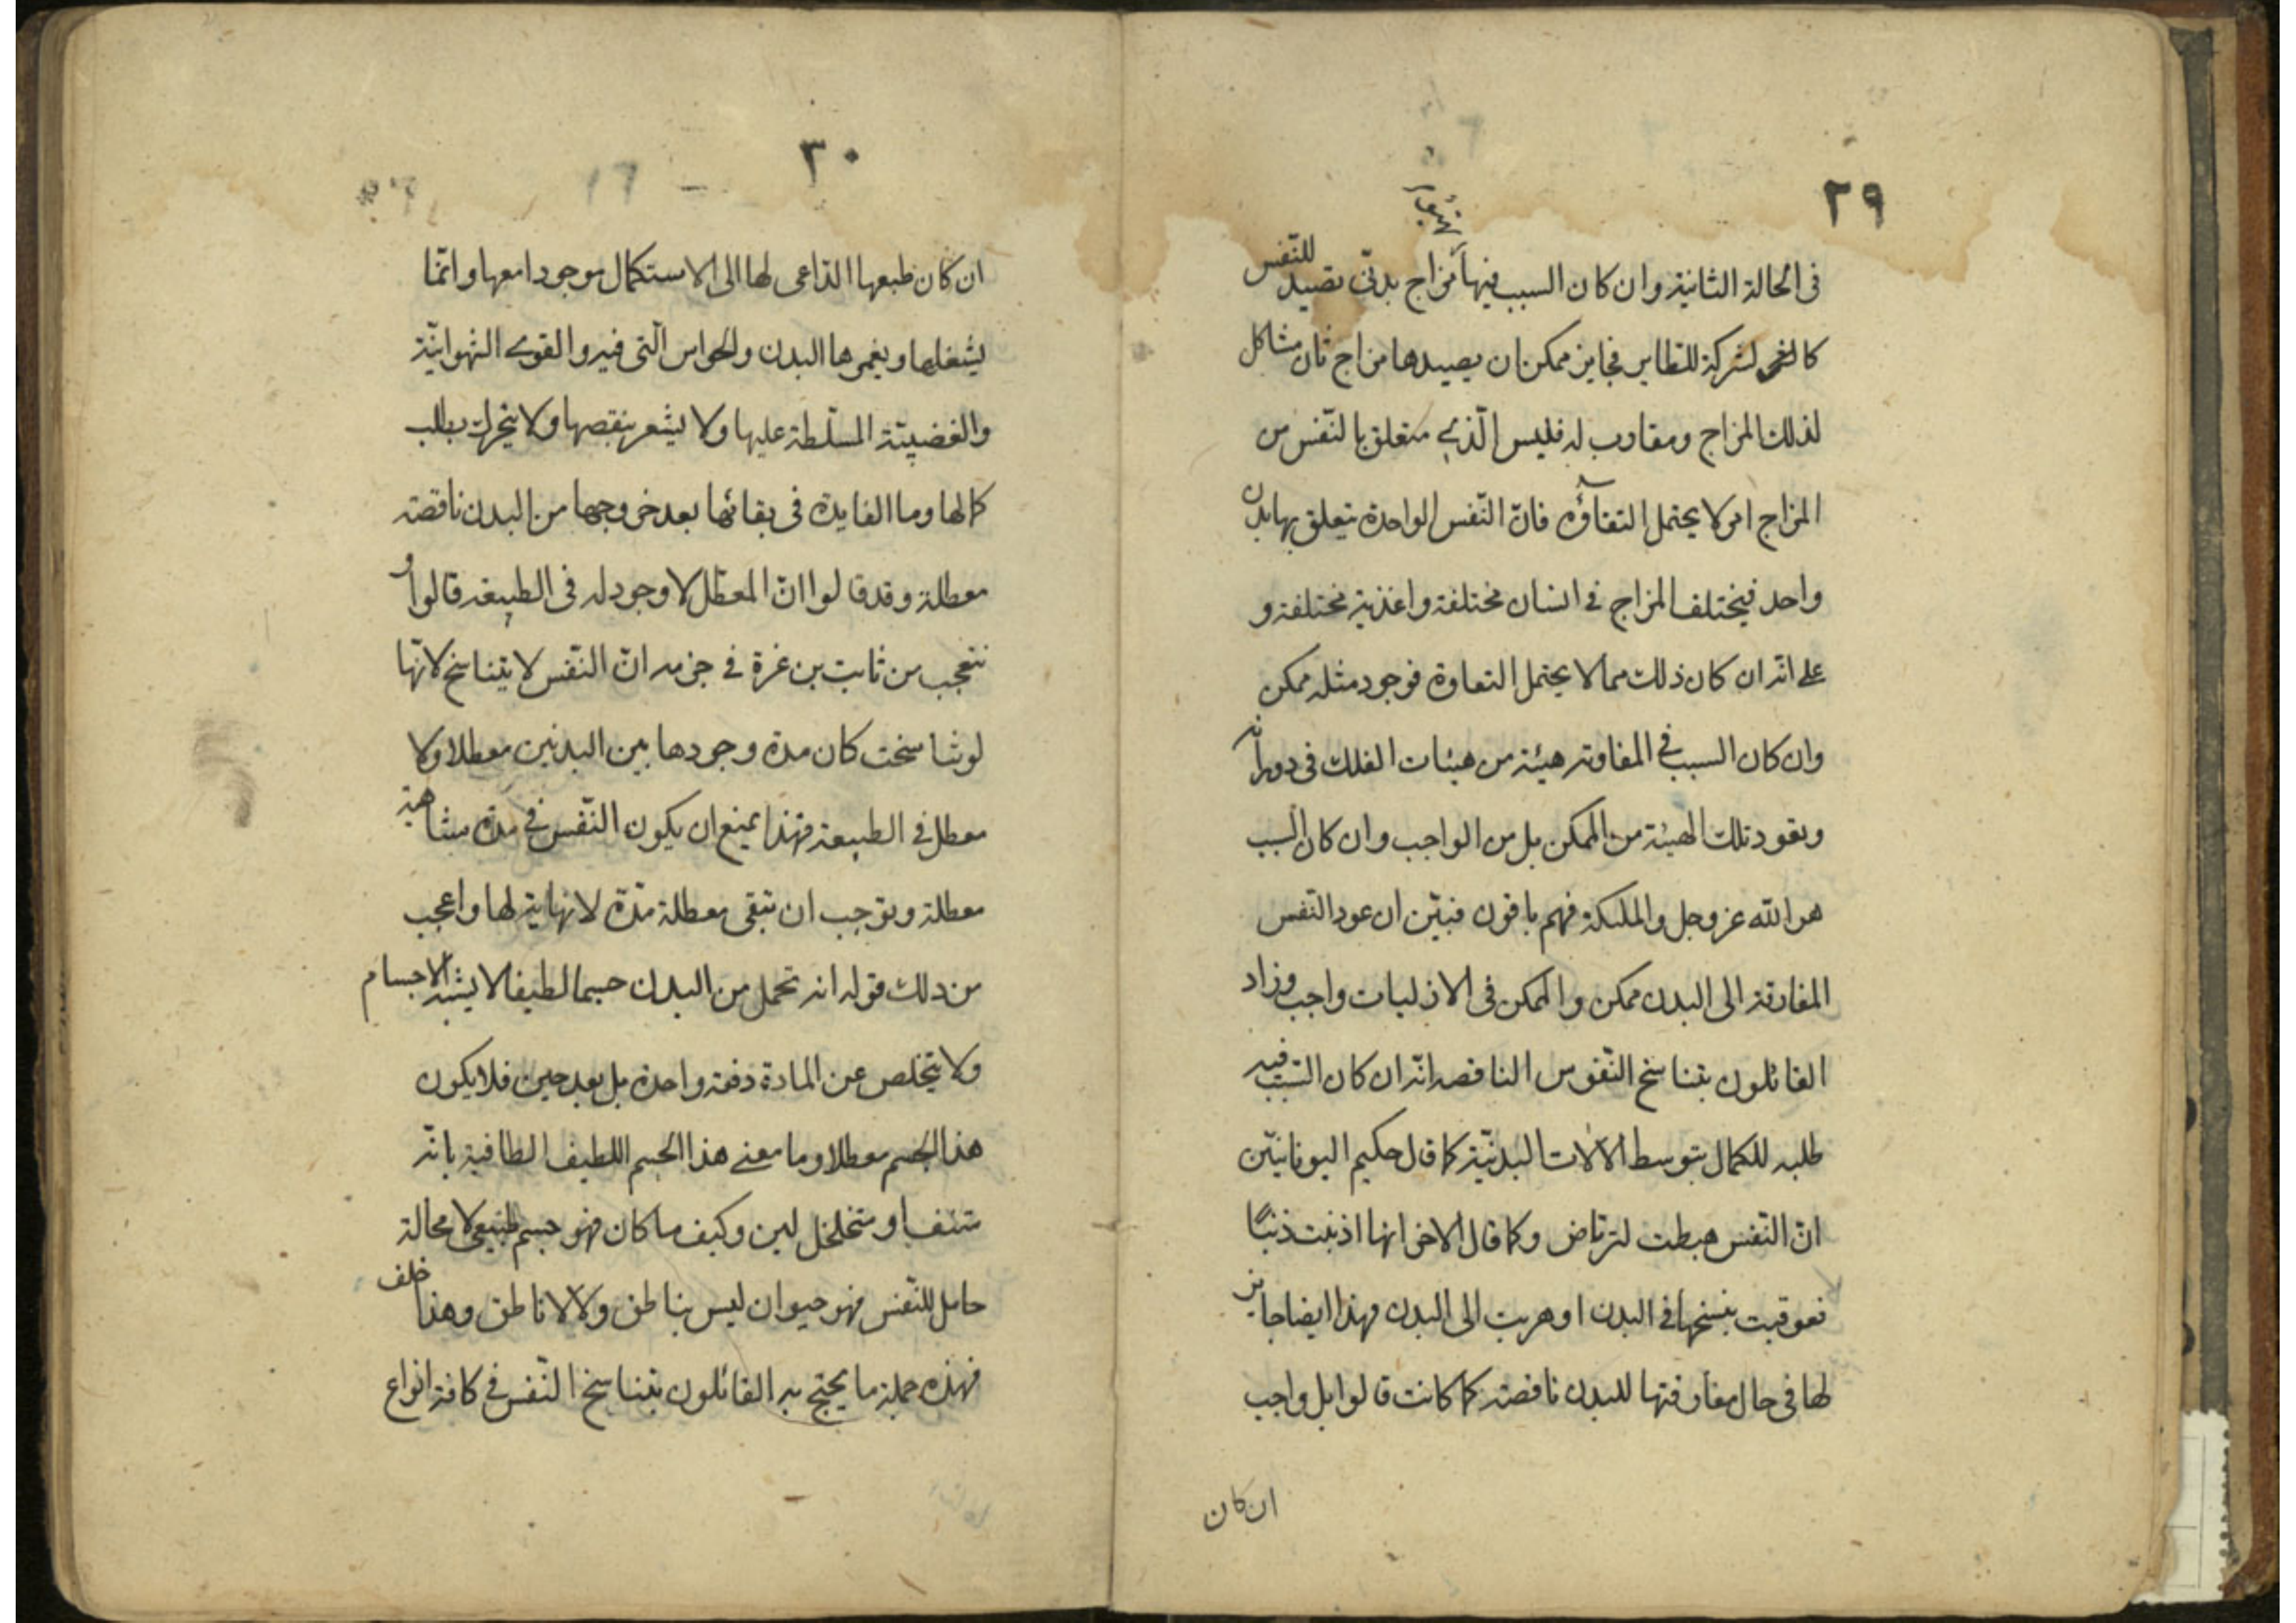 ٢٩
فى الحالة الثانية وان كان السبب فيها مزاج بدنىّ تصيد للنّفس
كالفخ لشركة للطاير فجايز ممكن ان يصيدها مزاج ثان مشاكل
لذلك المزاج ومقاوب له فليس الّذي متعلق بالنّفس من
المزاج امر لا يحتمل التفاؤه فانّ النّفس الواحدة يتعلق بها بدن
واحد فيختلف المزاج في اسنان مختلفة واغذية مختلفة و
على انّه ان كان ذلك مما لا يحتمل التعاوة فوجود مثله ممكن
وان كان السبب في المفاوته هيئة من هيئات الفلك فى دورانه
ويعود تلك الهيئة من الممكن بل من الواجب وان كان السبب
هو الله عز وجل والملئكة فهم باقون فبيّن ان عود النّفس
المفارقة الى البدن ممكن والممكن فى الازليات واجب وزاد
القائلون بتناسخ النّفوس الناقصه انّه ان كان السّبب فيه
طلبه للكمال بتوسط الآلات البدنيّة كما قال حكيم اليونانيّين
انّ النّفس هبطت لترتاض وكما قال الاخر انها اذنبت ذنبًا
فعوقبت بنسخها في البدن او هربت الى البدن فهذا ايضا جايز
لها فى حال مفارقتها للبدن ناقصة كما كانت قالوا بل واجب
ان كان
٣٠
ان كان طبعها الدّاعى لها الى الاستكمال موجودا معها وانّما
يشغلها ويغمرها البدن والحواس الّتى فيه والقوى الشهوانيّة
والغضبيّة المسلّطة عليها ولا يشعر بنقصها ولا يتحرك بطلب
كمالها وما الفايدة فى بقائها بعد خروجها من البدن ناقصة
معطلة وقد قالوا انّ المعطّل لا وجود له فى الطبيعة قالوا و
نتعجب من ثابت بن غرة في جزمه انّ النّفس لا يتناسخ لانّها
لو تناسخت كان مدة وجودها بين البدنين معطلا ولا
معطل في الطبيعة فهذا يمنع ان يكون النّفس في مدة متناهية
معطلة ويوجب ان تبقى معطلة مدّة لا نهاية لها واعجب
من ذلك قوله انه تحمل من البدن جسما لطيفا لا يشبه الاجسام
ولا يتخلص عن المادة دفعة واحدة بل بعد حين فلا يكون
هذا الجسم معطلا وما معنى هذا الجسم اللطيف الطافية بانّه
او متخلخل لين وكيف ما كان فهو جسم طبيعى لا محالة
حامل للنّفس فهو حيوان ليس بناطق ولا لا ناطق وهذا خلف
فهذه جملة ما يحتج به القائلون بتناسخ النّفس فى كافة انواع